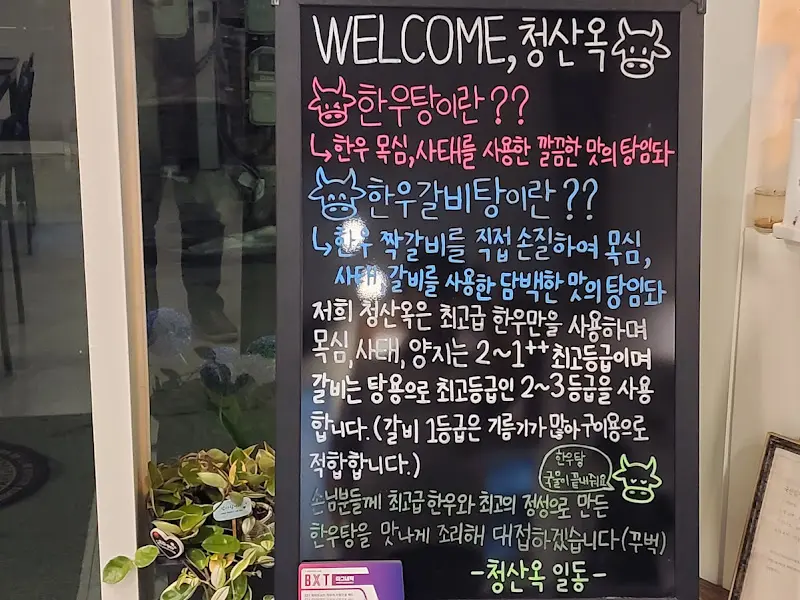 WELCOME, 청산옥
한우탕이란??
↳한우 목심,사태를 사용한 깔끔한 맛의 탕임돠
한우갈비탕이란??
↳한우 짝갈비를 직접 손질하여 목심,
사태, 갈비를 사용한 담백한 맛의 탕임돠
저희 청산옥은 최고급 한우만을 사용하며
목심,사태, 양지는 2~1++ 최고등급이며
갈비는 탕용으로 최고등급인 2~3등급을 사용
합니다.(갈비 1등급은 기름기가 많아 구이용으로
적합합니다.)
한우탕
국물이 끝내줘요
손님분들께 최고급 한우와 최고의 정성으로 만든
한우탕을 맛나게 조리해 대접하겠습니다(꾸벅)
-청산옥 일동-
BXT